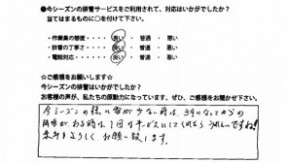 ●今シーズンの排雪サービスをご利用されて、対応はいかがでしたか?
当てはまるものに○を付けて下さい。
・作業員の態度 良い ・ 普通 ・ 悪い
・排雪の丁寧さ 良い ・ 普通 ・ 悪い
・電話対応 良い ・ 普通 ・ 悪い
☆ご感想をお願いします☆
今シーズンの排雪はいかがでしたか?
お客様の声が、私たちの原動力になっています。ぜひ、ご感想をお聞かせ下さい。
今シーズンの様に雪が少ない時は、3月になってからの
有る時は、1回のサービスにしてくれると うれしいですね!
来年もよろしく お願い致します。